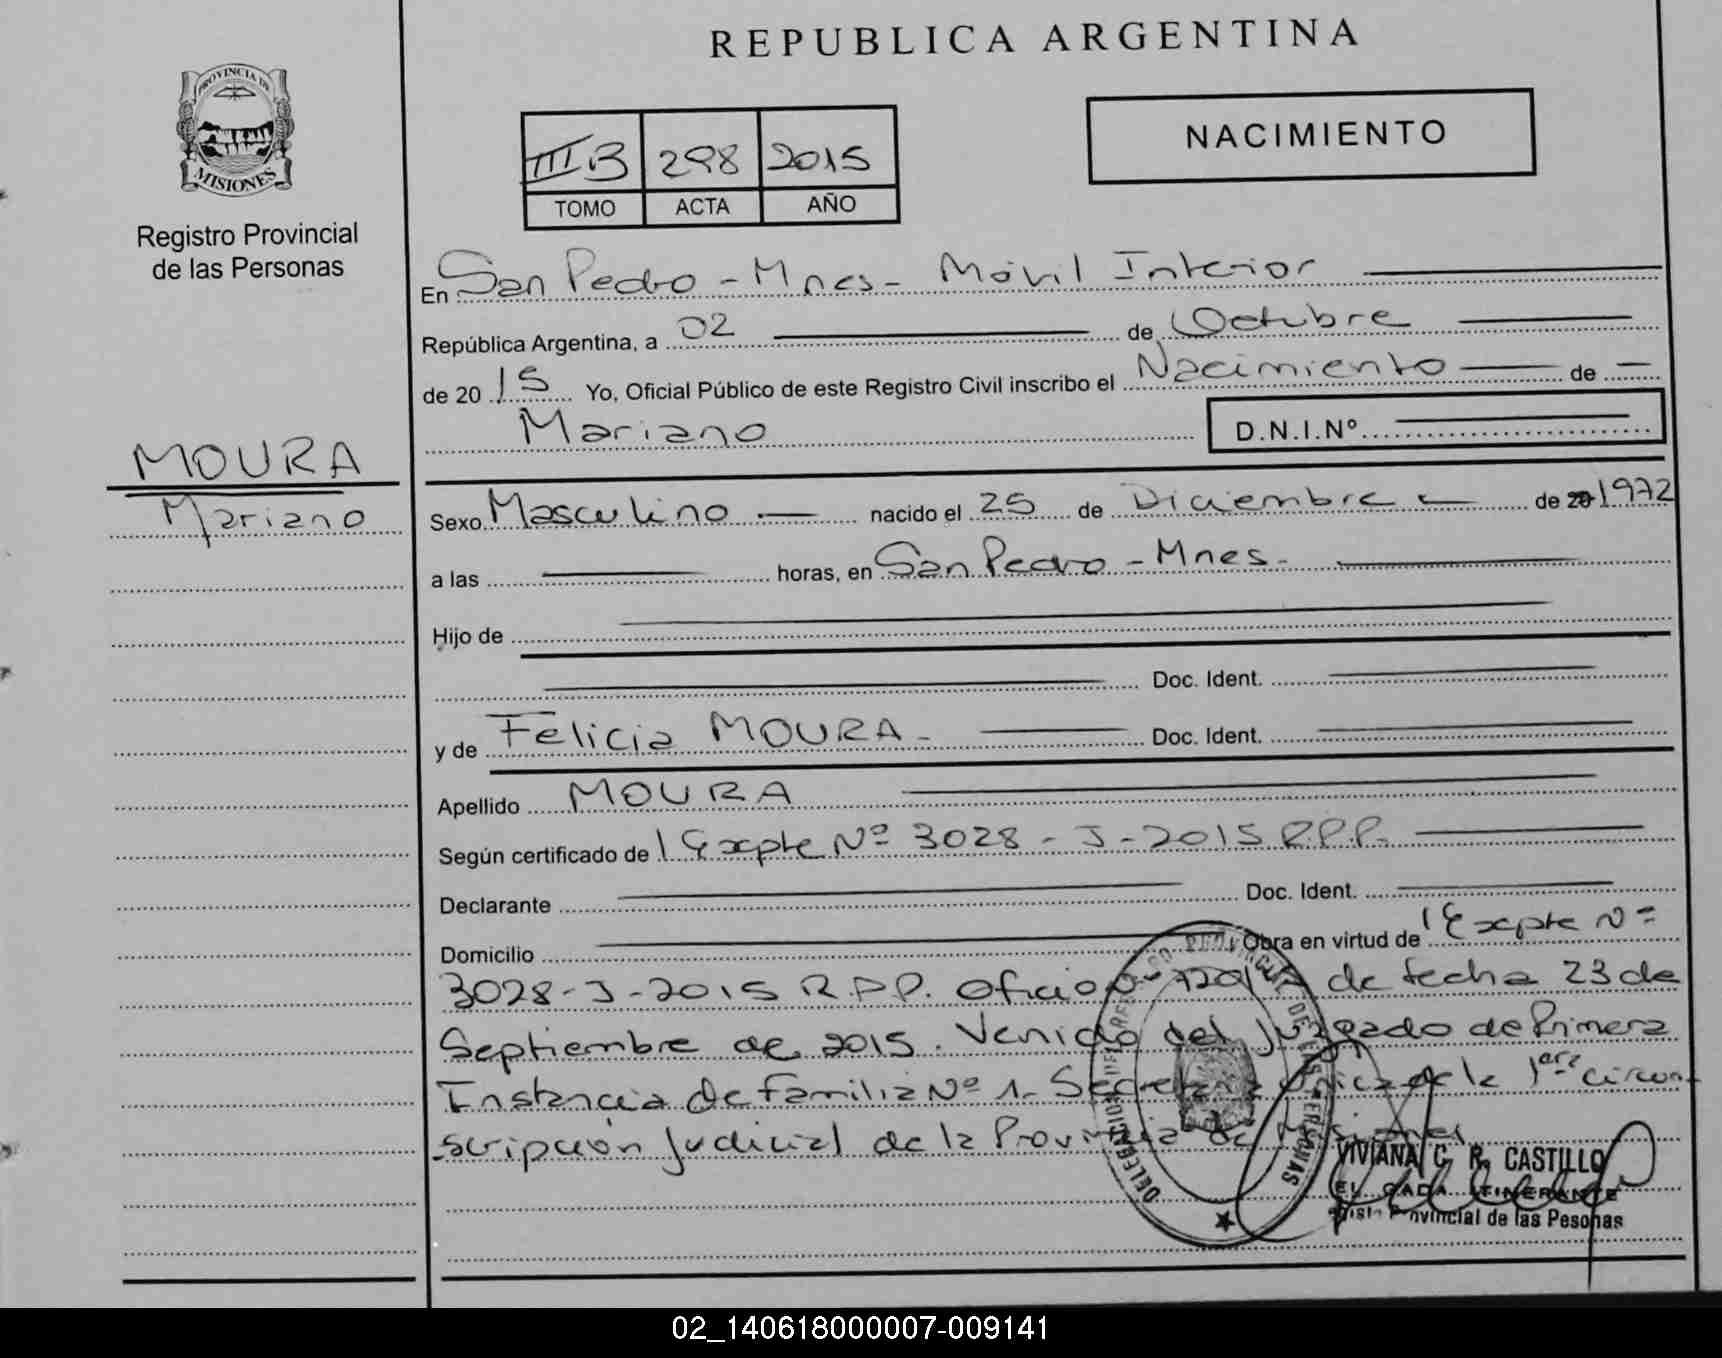 REPUBLICA ARGENTINA
PROVINCIA DE
MISIONES
Registro Provincial
de las Personas
III B 298 2015
TOMO ACTA AÑO
NACIMIENTO
En San Pedro - Mnes - Móvil Interior
República Argentina, a 02 de Octubre
de 20 15 Yo, Oficial Público de este Registro Civil inscribo el Nacimiento de
Mariano D.N.I.Nº
MOURA
Mariano
Sexo Masculino nacido el 25 de Diciembre de 20 1972
a las horas, en San Pedro - Mnes.
Hijo de
Doc. Ident.
y de Felicia MOURA - Doc. Ident.
Apellido MOURA
Según certificado de Expte Nº 3028 - J - 2015 R.P.P.
Declarante Doc. Ident.
Domicilio Obra en virtud de Expte Nº
3028 - J - 2015 R.P.P. Oficio de fecha 23 de
Septiembre de 2015. Venido del Juzgado de Primera
Instancia de Familia Nº 1 - Secretaria Unica de la 1era circun-
scripción Judicial de la Provincia de Misiones
VIVIANA C. R. CASTILLO
ITINERANTE
Provincial de las Pesonas
02_140618000007-009141